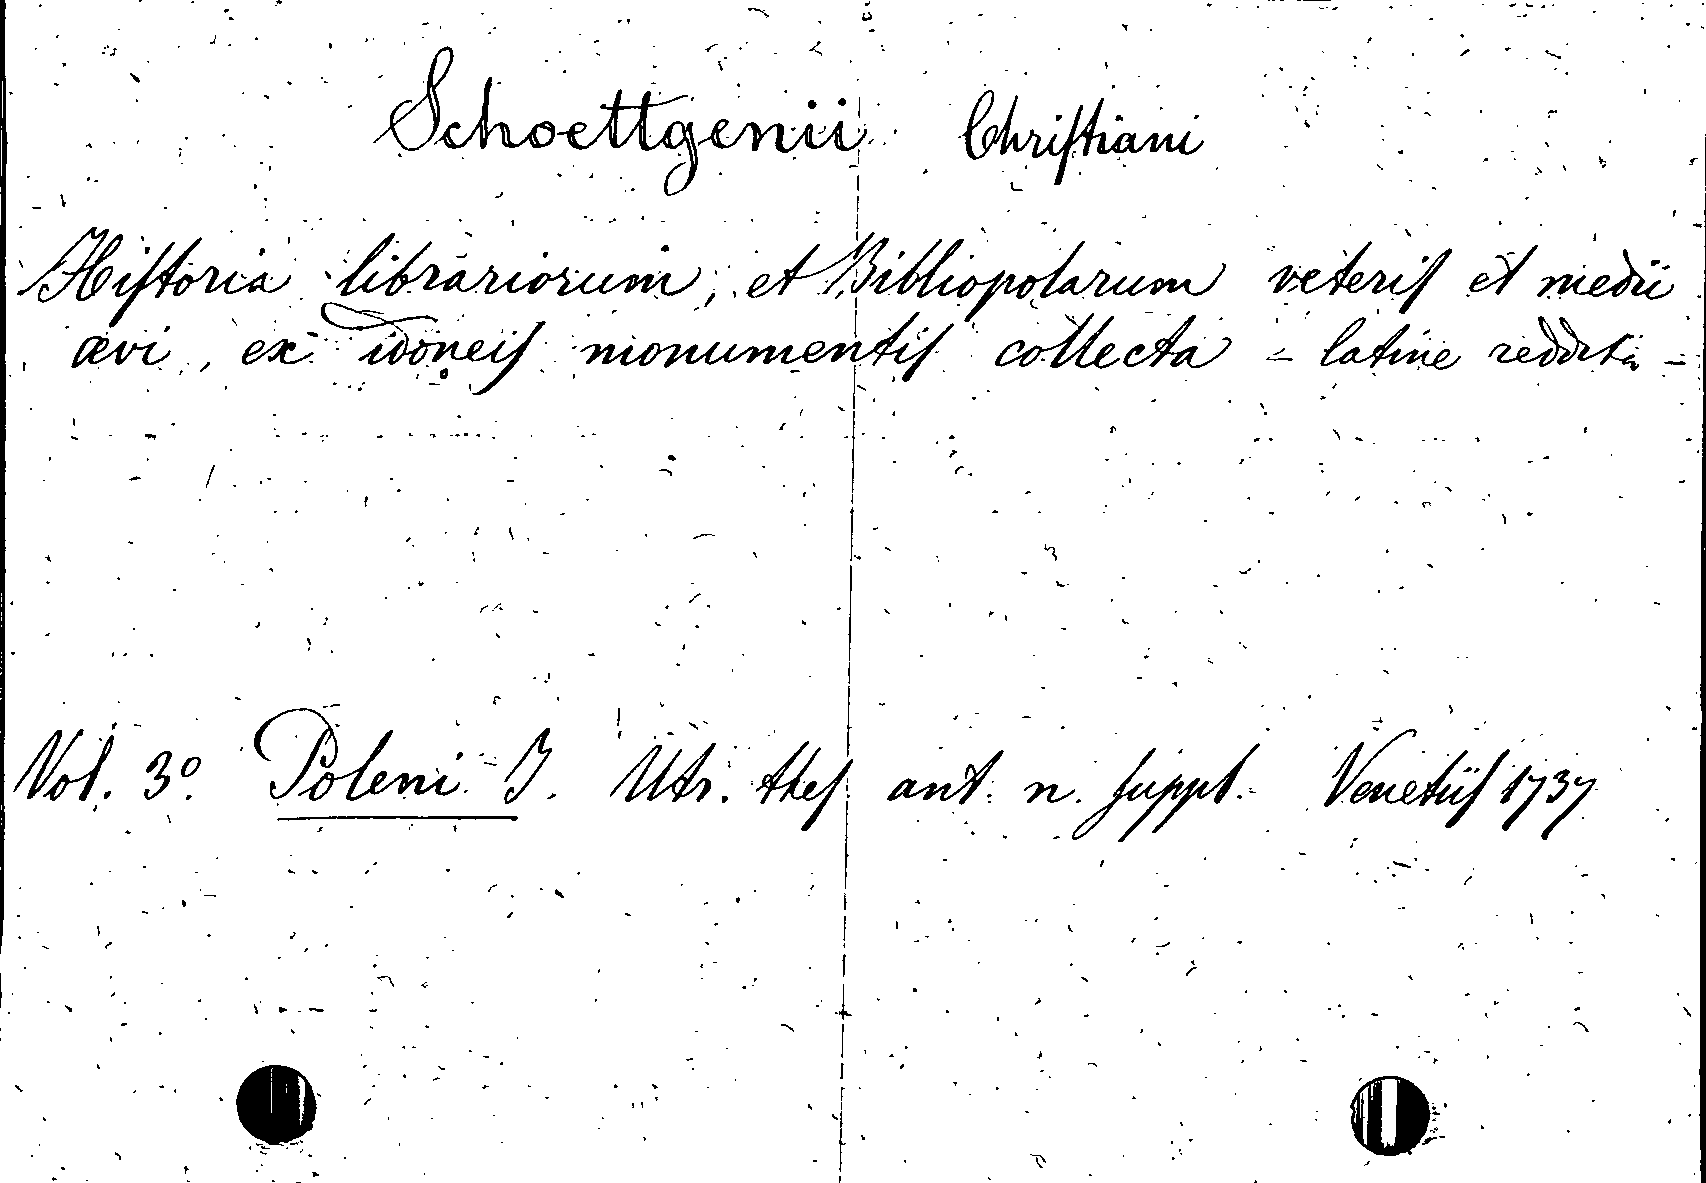 Schoettgenii Chriſtiani
Hiſtoria librariorum, et Bibliopolarum veteriſ et medii
ævi, ex idoneiſ monumentiſ collecta - latine reddita -
Vol. 3º. Poleni J. Utr. theſ ant. n. ſuppl. Venetiiſ 1737